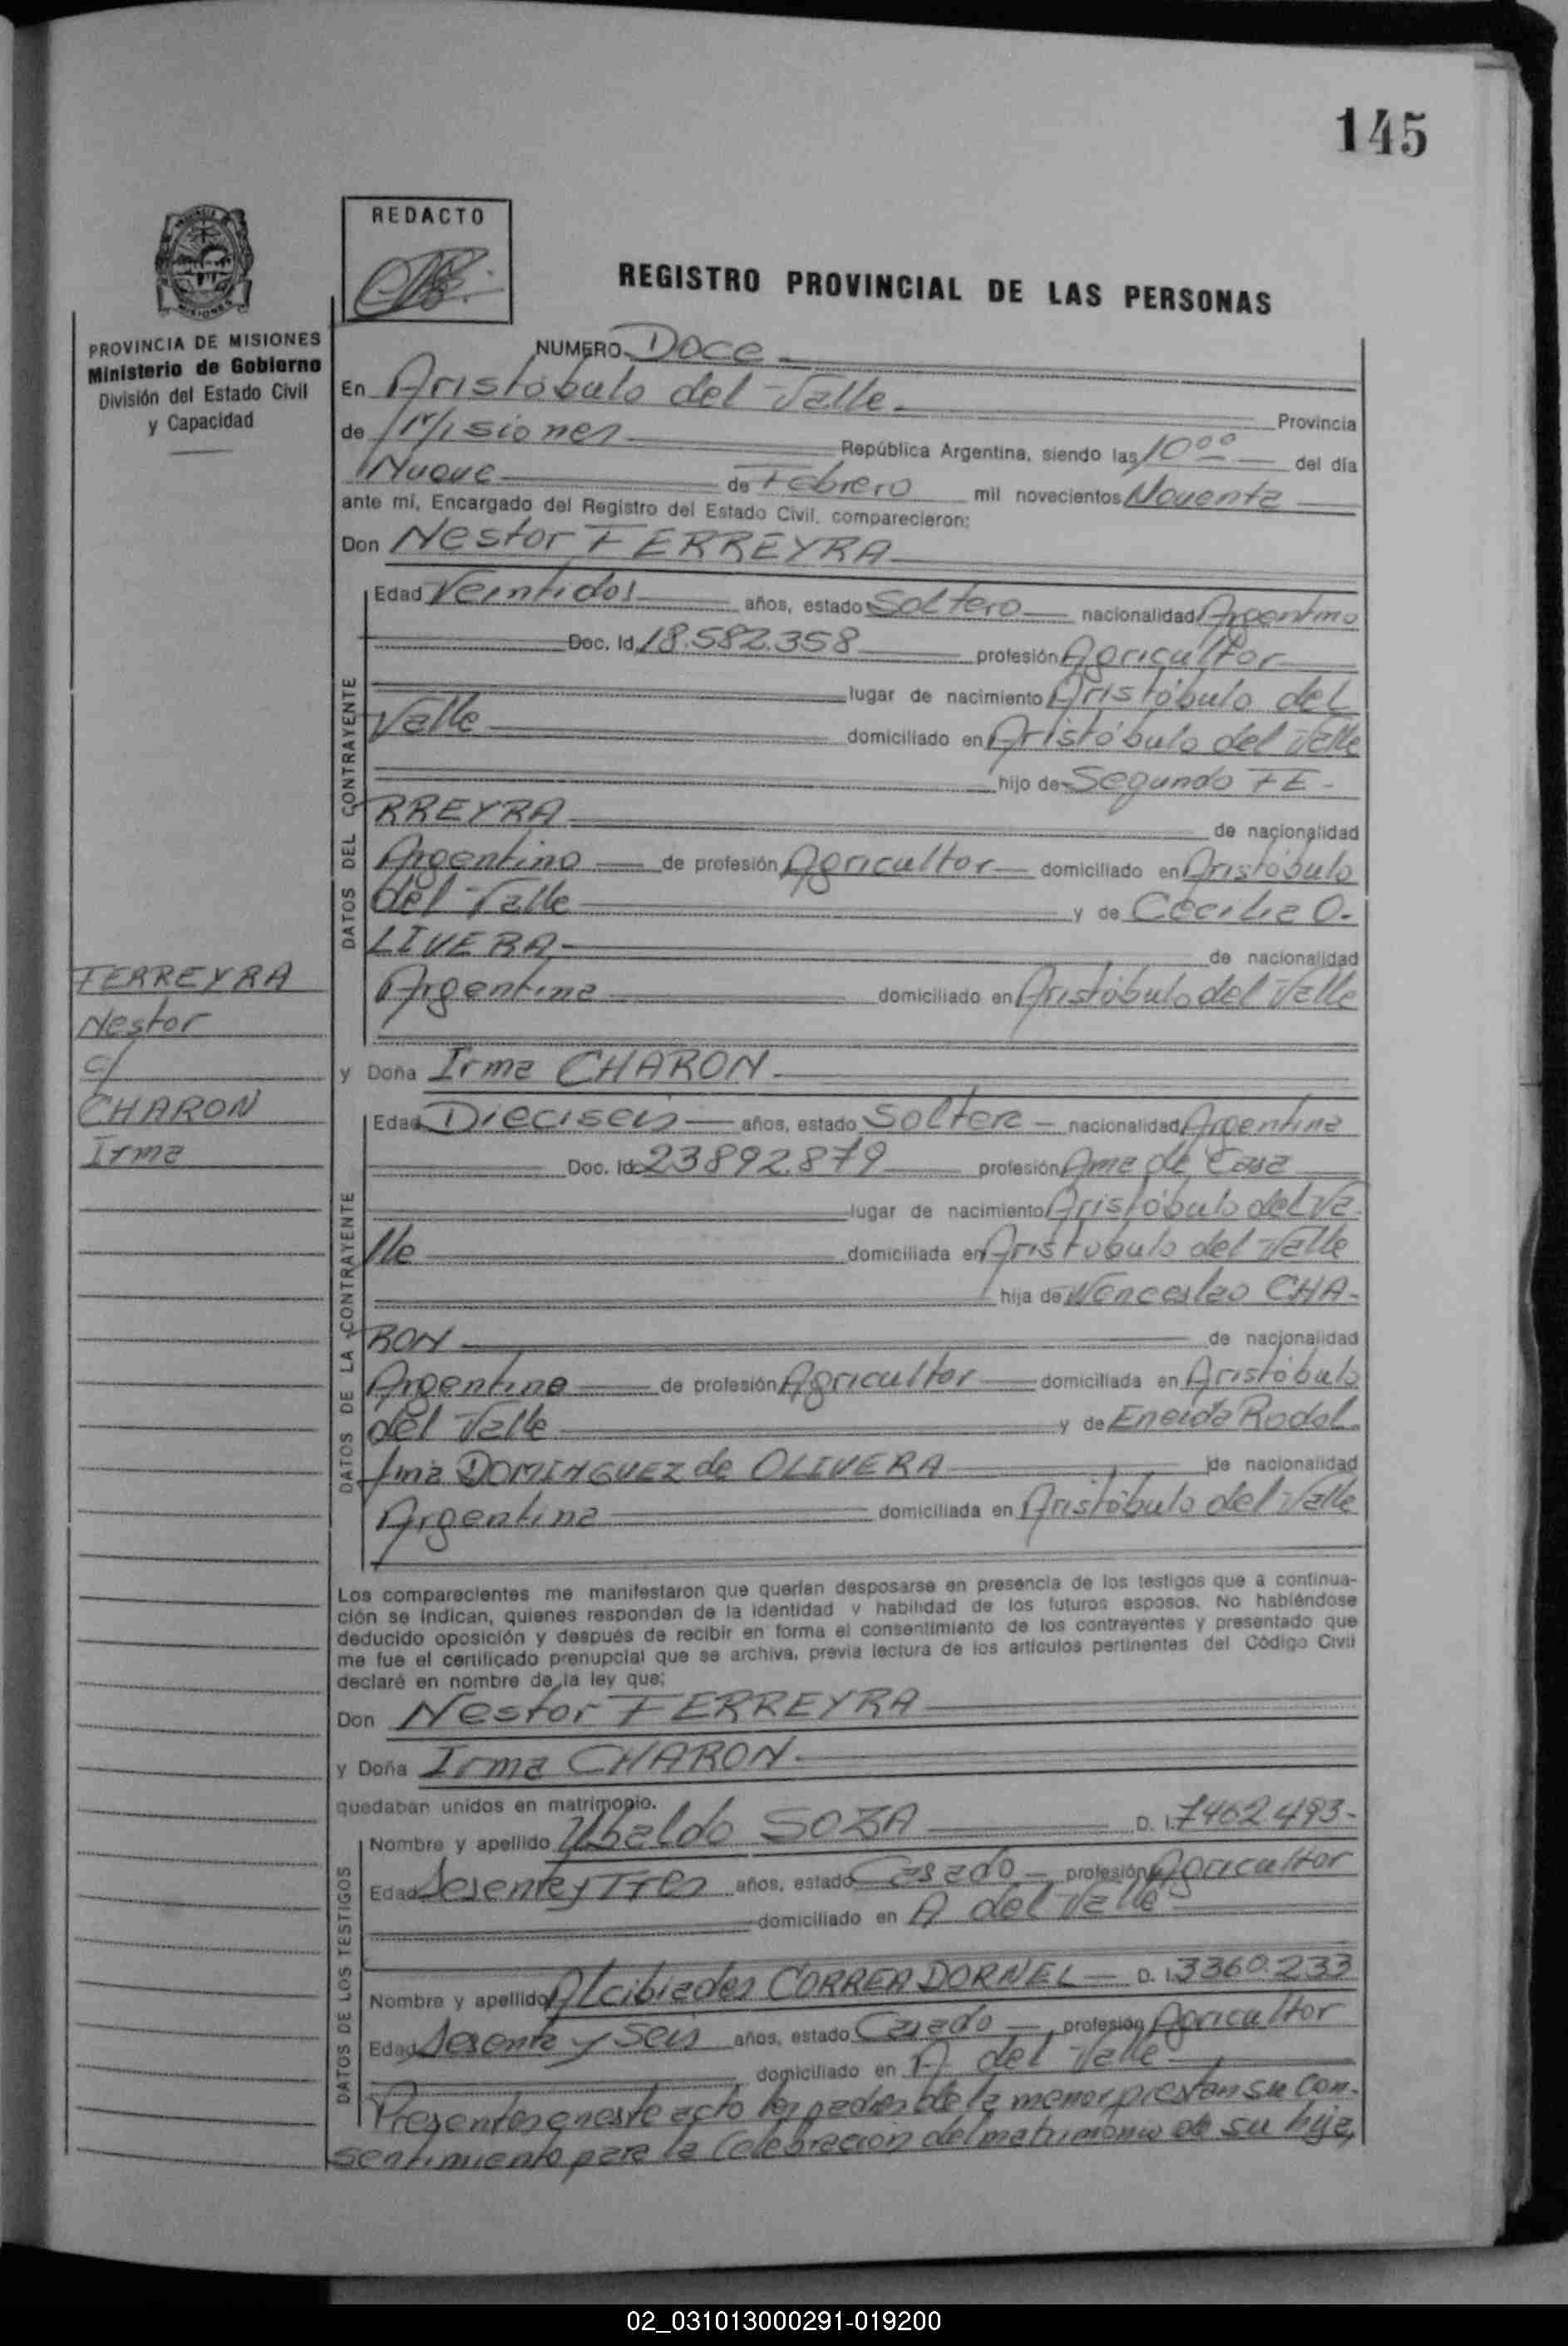 145
REDACTO
REGISTRO PROVINCIAL DE LAS PERSONAS
MISIONES
PROVINCIA DE MISIONES
Ministerio de Gobierno
División del Estado Civil
y Capacidad
NUMERO Doce
En Aristóbulo del Valle Provincia
de Misiones República Argentina, siendo las 10°° del día
Nueve de Febrero mil novecientos Noventa
ante mí, Encargado del Registro del Estado Civil, comparecieron:
Don Nestor FERREYRA
DATOS DEL CONTRAYENTE
Edad Veintidos años, estado Soltero nacionalidad Argentino
Doc. Id. 18.582.358 profesión Agricultor
lugar de nacimiento Aristóbulo del
Valle domiciliado en Aristóbulo del Valle
hijo de Segundo FE-
RREYRA de nacionalidad
Argentino de profesión Agricultor domiciliado en Aristóbulo
del Valle y de Cecilia O-
LIVERA de nacionalidad
Argentina domiciliado en Aristóbulo del Valle
FERREYRA
Nestor
c/
CHARON
Irma
y Doña Irma CHARON
DATOS DE LA CONTRAYENTE
Edad Dieciseis años, estado Soltera nacionalidad Argentina
Doc. Id. 23892.879 profesión Ama de Casa
lugar de nacimiento Aristóbulo del Va-
lle domiciliada en Aristobulo del Valle
hija de Wenceslao CHA-
RON de nacionalidad
Argentino de profesión Agricultor domiciliada en Aristóbulo
del Valle y de Eneida Rodol-
fina DOMINGUEZ de OLIVERA de nacionalidad
Argentina domiciliada en Aristóbulo del Valle
Los comparecientes me manifestaron que querían desposarse en presencia de los testigos que a continua-
ción se indican, quienes responden de la identidad y habilidad de los futuros esposos. No habiéndose
deducido oposición y después de recibir en forma el consentimiento de los contrayentes y presentado que
me fue el certificado prenupcial que se archiva, previa lectura de los artículos pertinentes del Código Civil
declaré en nombre de la ley que:
Don Nestor FERREYRA
y Doña Irma CHARON
quedaban unidos en matrimonio.
DATOS DE LOS TESTIGOS
Nombre y apellido Ubaldo SOZA D. I. 7462.493-
Edad Sesenta y Tres años, estado Casado profesión Agricultor
domiciliado en A del Valle
Nombre y apellido Alcibiades CORREA DORNEL D. I. 3360.233
Edad Sesenta y Seis años, estado Casado profesión Agricultor
domiciliado en A. del Valle
Presentes en este acto los padres de la menor prestan su con-
sentimiento para la Celebracion del matrimonio de su hija,
02_031013000291-019200